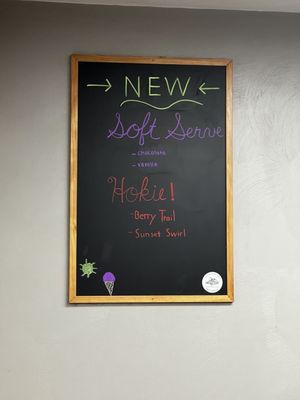 → NEW ←
Soft Serve
- CHOCOLATE
- VANILLA
Hokie!
- Berry Trail
- Sunset Swirl